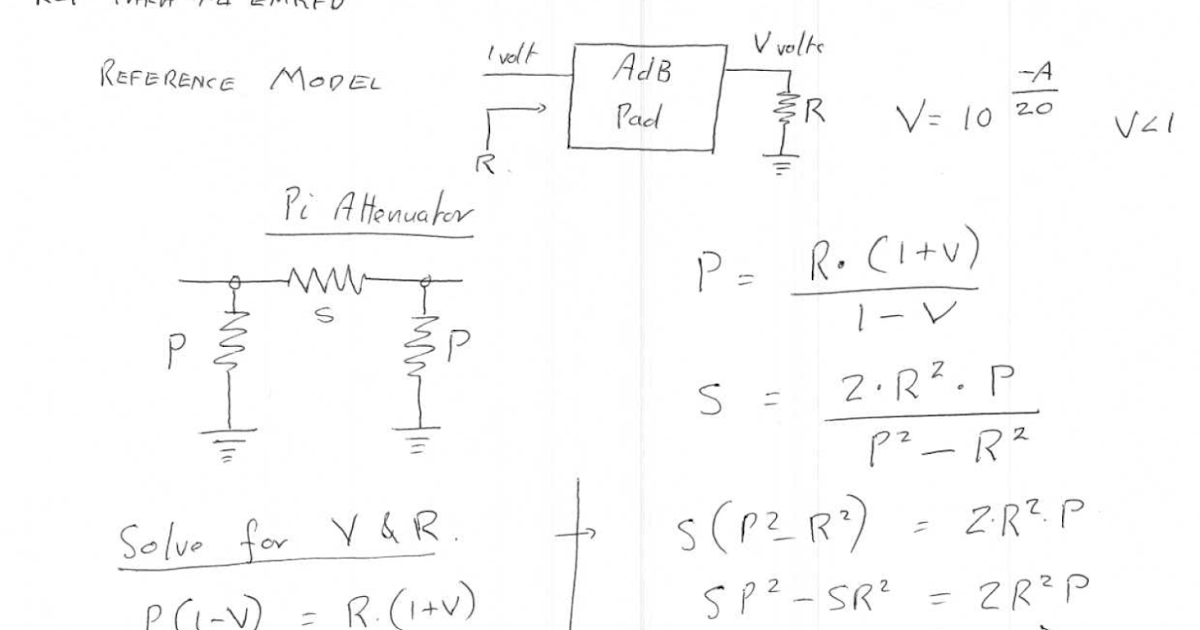 REFERENCE MODEL
1 volt
AdB
Pad
V volts
R
R.
V = 10^(-A/20)
V<1
Pi Attenuator
S
P
P
P = R.(1+V) / 1-V
S = 2.R².P / P²-R²
Solve for V & R.
P(1-V) = R.(1+V)
S(P²-R²) = 2.R².P
SP²-SR² = 2R²P